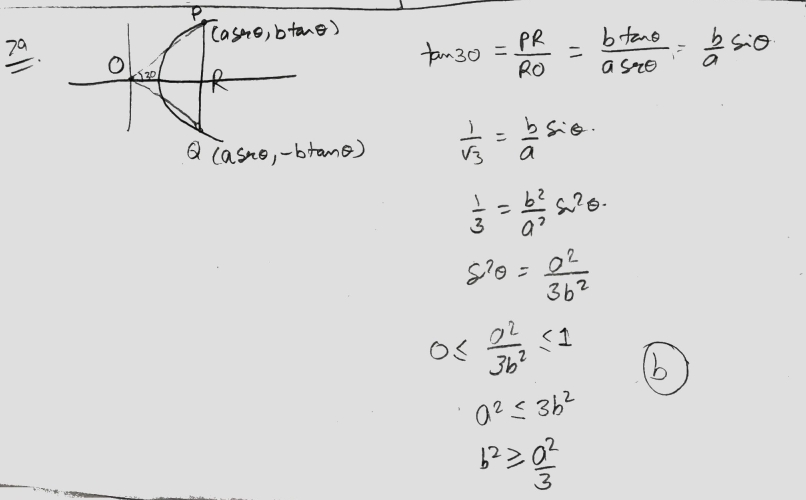 79.
P
(a secθ, b tanθ)
O
30
R
Q (a secθ, -b tanθ)
tan30 = PR/RO = b tanθ/a secθ = b/a sinθ
1/√3 = b/a sinθ.
1/3 = b²/a² sin²θ.
sin²θ = a²/3b²
0 ≤ a²/3b² ≤ 1
a² ≤ 3b²
b² ≥ a²/3
b